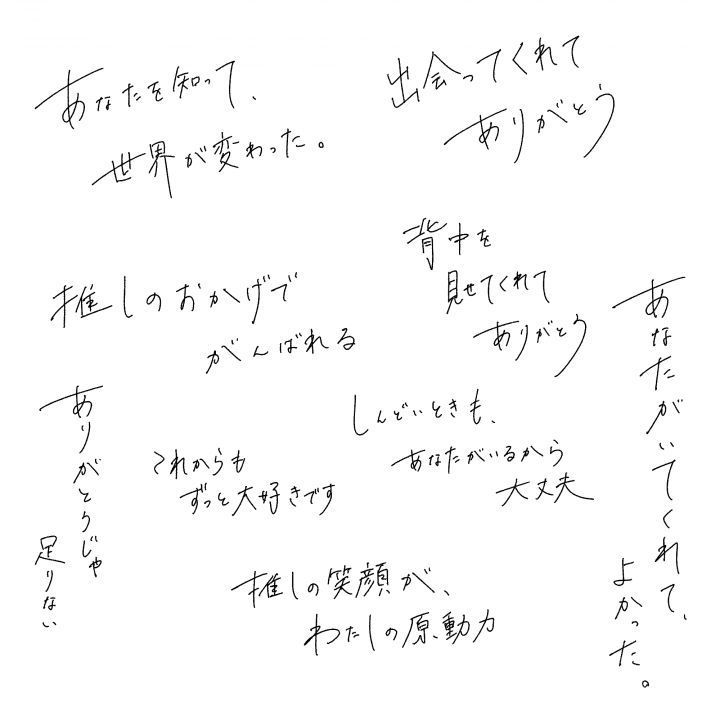 あなたを知って、
世界が変わった。
出会ってくれて
ありがとう
推しのおかげで
がんばれる
背中を
見せてくれて
ありがとう
あなたがいてくれて、
よかった。
ありがとうじゃ
足りない
これからも
ずっと大好きです
しんどいときも、
あなたがいるから
大丈夫
推しの笑顔が、
わたしの原動力